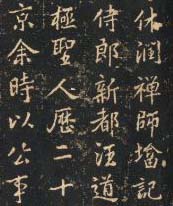 休潤禅師墖記
侍郎新都汪道
極聖人歷二十
京余時以公事